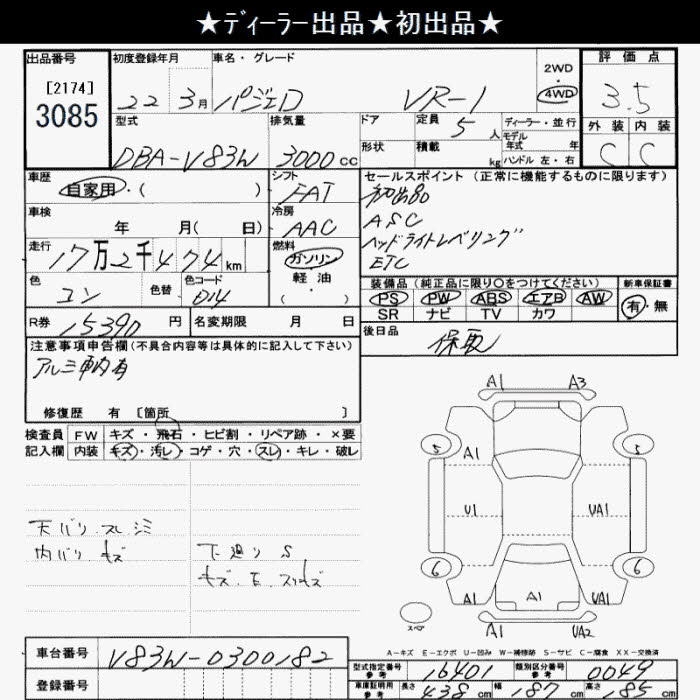 ★ディーラー出品★初出品★
出品番号 初度登録年月 車名・グレード 2WD・4WD 評価点
[2174] 3085 22年3月 パジェロ VR-1 3.5
型式 排気量 ドア 定員 5人 ディーラー・並行 外装 内装
DBA-V83W 3000cc 形状 積載 kg モデル年式 年 ハンドル 左・右 C C
車歴 シフト セールスポイント(正常に機能するものに限ります)
自家用・( ) FAT 初出品
車検 冷房 ASC
年 月( 日) AAC ヘッドライトレベリング
走行 燃料 ETC
17万2千474km ガソリン
軽油
・( )
色 色替 色コード 装備品(純正品に限り〇をつけてください) 新車保証書
コン 014 PS PW ABS エアB AW 有・無
SR ナビ TV カワ
R券 15390円 名変期限 月 日 後日品
保取
注意事項申告欄(不具合内容等は具体的に記入して下さい)
アルミ車内有
修復歴 有 [箇所 ]
検査員 FW キズ・飛石・ヒビ割・リペア跡・×要
記入欄 内装 キズ・汚レ・コゲ・穴・スレ・キレ・破レ
天バリ スレ シミ
内バリ キズ
下廻り S
A1 A3
5 5
A1
U1 UA1
6 6
A1 A1 UA1
A1 UA2
スペア
A-キズ E-エクボ U-凹み W-補修跡 S-サビ C-腐食 XX-交換済
車台番号 V83W-0300182
登録番号
型式指定番号 参考 16401 類別区分番号 参考 0049
車庫証明用 参考 長さ 438cm 幅 187cm 高さ 185cm